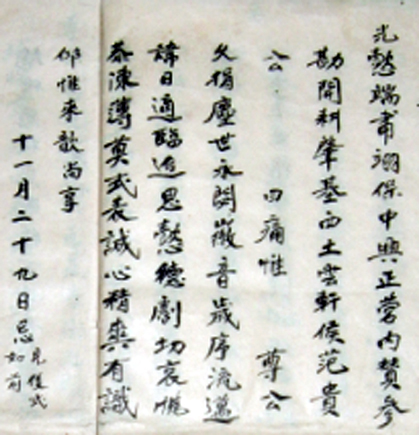 光懿端肅翊保中興正營內贊參
勘開耕肇基西土雲軒侯范貴
公 曰痛惟 尊公
久捐塵世永閟徽音歲序流邁
諱日適臨追思懿德劇切哀
恭陳薄奠式表誠心精爽有識
仰惟來歆尚享
十一月二十九日忌
式
如前